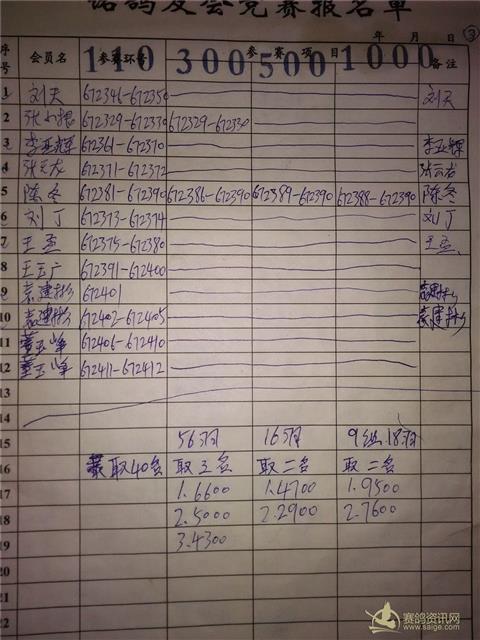 诺鸽友会竞赛报名单
年 月 日 ③
序号 会员名 参赛环号 参赛项目 备注
110 300 500 1000
1 刘天 672346-672350 刘天
2 672329-672330 672329-672330
3 李亚辉 672361-672370 李亚辉
4 张云龙 672371-672372 张云龙
5 陈冬 672381-672390 672386-672390 672389-672390 672388-672390 陈冬
6 刘丁 672373-672374 刘丁
7 王孟 672375-672380 王孟
8 王云广 672391-672400
9 袁建彬 672401 袁建彬
10 袁建彬 672402-672405 袁建彬
11 董玉峰 672406-672410
12 董玉峰 672411-672412
13
14
15 56羽 16羽 9组18羽
16 取40名 取三名 取二名 取二名
17 1.6600 1.4700 1.9500
18 2.5000 2.2900 2.7600
19 3.4300
20
21
22
赛鸽资讯网
www.saige.com